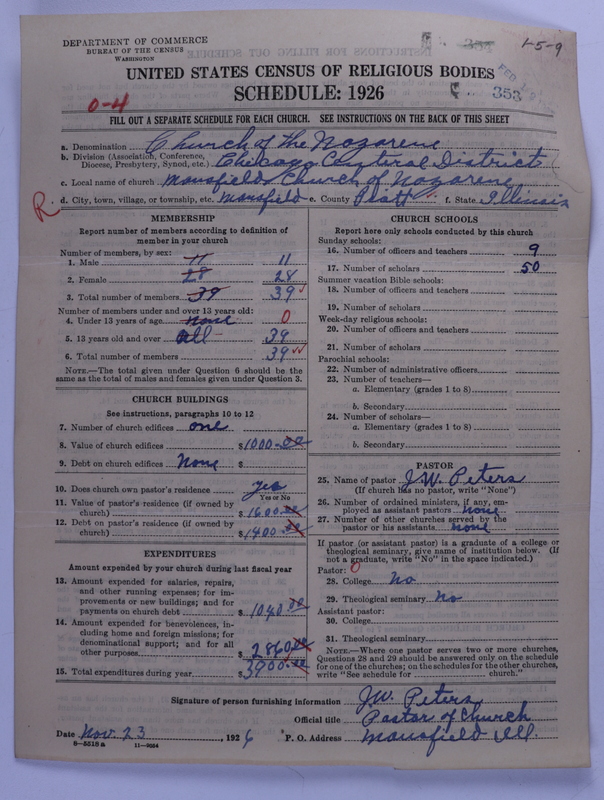 DEPARTMENT OF COMMERCE
BUREAU OF THE CENSUS
WASHINGTON
354
1-5-9
UNITED STATES CENSUS OF RELIGIOUS BODIES
SCHEDULE: 1926
353
0-4
FILL OUT A SEPARATE SCHEDULE FOR EACH CHURCH. SEE INSTRUCTIONS ON THE BACK OF THIS SHEET
a. Denomination Church of the Nazarene
b. Division (Association, Conference, Diocese, Presbytery, Synod, etc.) Chicago Central District
c. Local name of church Mansfield Church of Nazarene
R.
d. City, town, village, or township, etc. Mansfield e. County Piatt f. State Illinois
MEMBERSHIP
Report number of members according to definition of
member in your church
Number of members, by sex:
1. Male 11 11
2. Female 28 28
3. Total number of members 39 39
Number of members under and over 13 years old:
4. Under 13 years of age none 0
5. 13 years old and over all 39
6. Total number of members 39
NOTE.—The total given under Question 6 should be the
same as the total of males and females given under Question 3.
CHURCH BUILDINGS
See instructions, paragraphs 10 to 12
7. Number of church edifices one
8. Value of church edifices $1000.00
9. Debt on church edifices None $
10. Does church own pastor's residence yes
Yes or No
11. Value of pastor's residence (if owned by
church) $1600.00
12. Debt on pastor's residence (if owned by
church) $1400.00
EXPENDITURES
Amount expended by your church during last fiscal year
13. Amount expended for salaries, repairs,
and other running expenses; for im-
provements or new buildings; and for
payments on church debt $1040.00
14. Amount expended for benevolences, in-
cluding home and foreign missions; for
denominational support; and for all
other purposes $2860.00
15. Total expenditures during year $3900.00
CHURCH SCHOOLS
Report here only schools conducted by this church
Sunday schools:
16. Number of officers and teachers 9
17. Number of scholars 50
Summer vacation Bible schools:
18. Number of officers and teachers
19. Number of scholars
Week-day religious schools:
20. Number of officers and teachers
21. Number of scholars
Parochial schools:
22. Number of administrative officers
23. Number of teachers—
a. Elementary (grades 1 to 8)
b. Secondary
24. Number of scholars—
a. Elementary (grades 1 to 8)
b. Secondary
PASTOR
25. Name of pastor J.W. Peters
(If church has no pastor, write "None")
26. Number of ordained ministers, if any, em-
ployed as assistant pastors none
27. Number of other churches served by the
pastor or his assistants none
If pastor (or assistant pastor) is a graduate of a college or
theological seminary, give name of institution below. (If
not a graduate, write "No" in the space indicated.)
Pastor: 0
28. College No
29. Theological seminary No
Assistant pastor:
30. College
31. Theological seminary
NOTE.—Where one pastor serves two or more churches,
Questions 28 and 29 should be answered only on the schedule
for one of the churches; on the schedules for the other churches,
write "See schedule for church."
Signature of person furnishing information J.W. Peters
Official title Pastor of Church
Date Nov. 23, 1926 P. O. Address Mansfield Ill.
8-5518a 11-9054